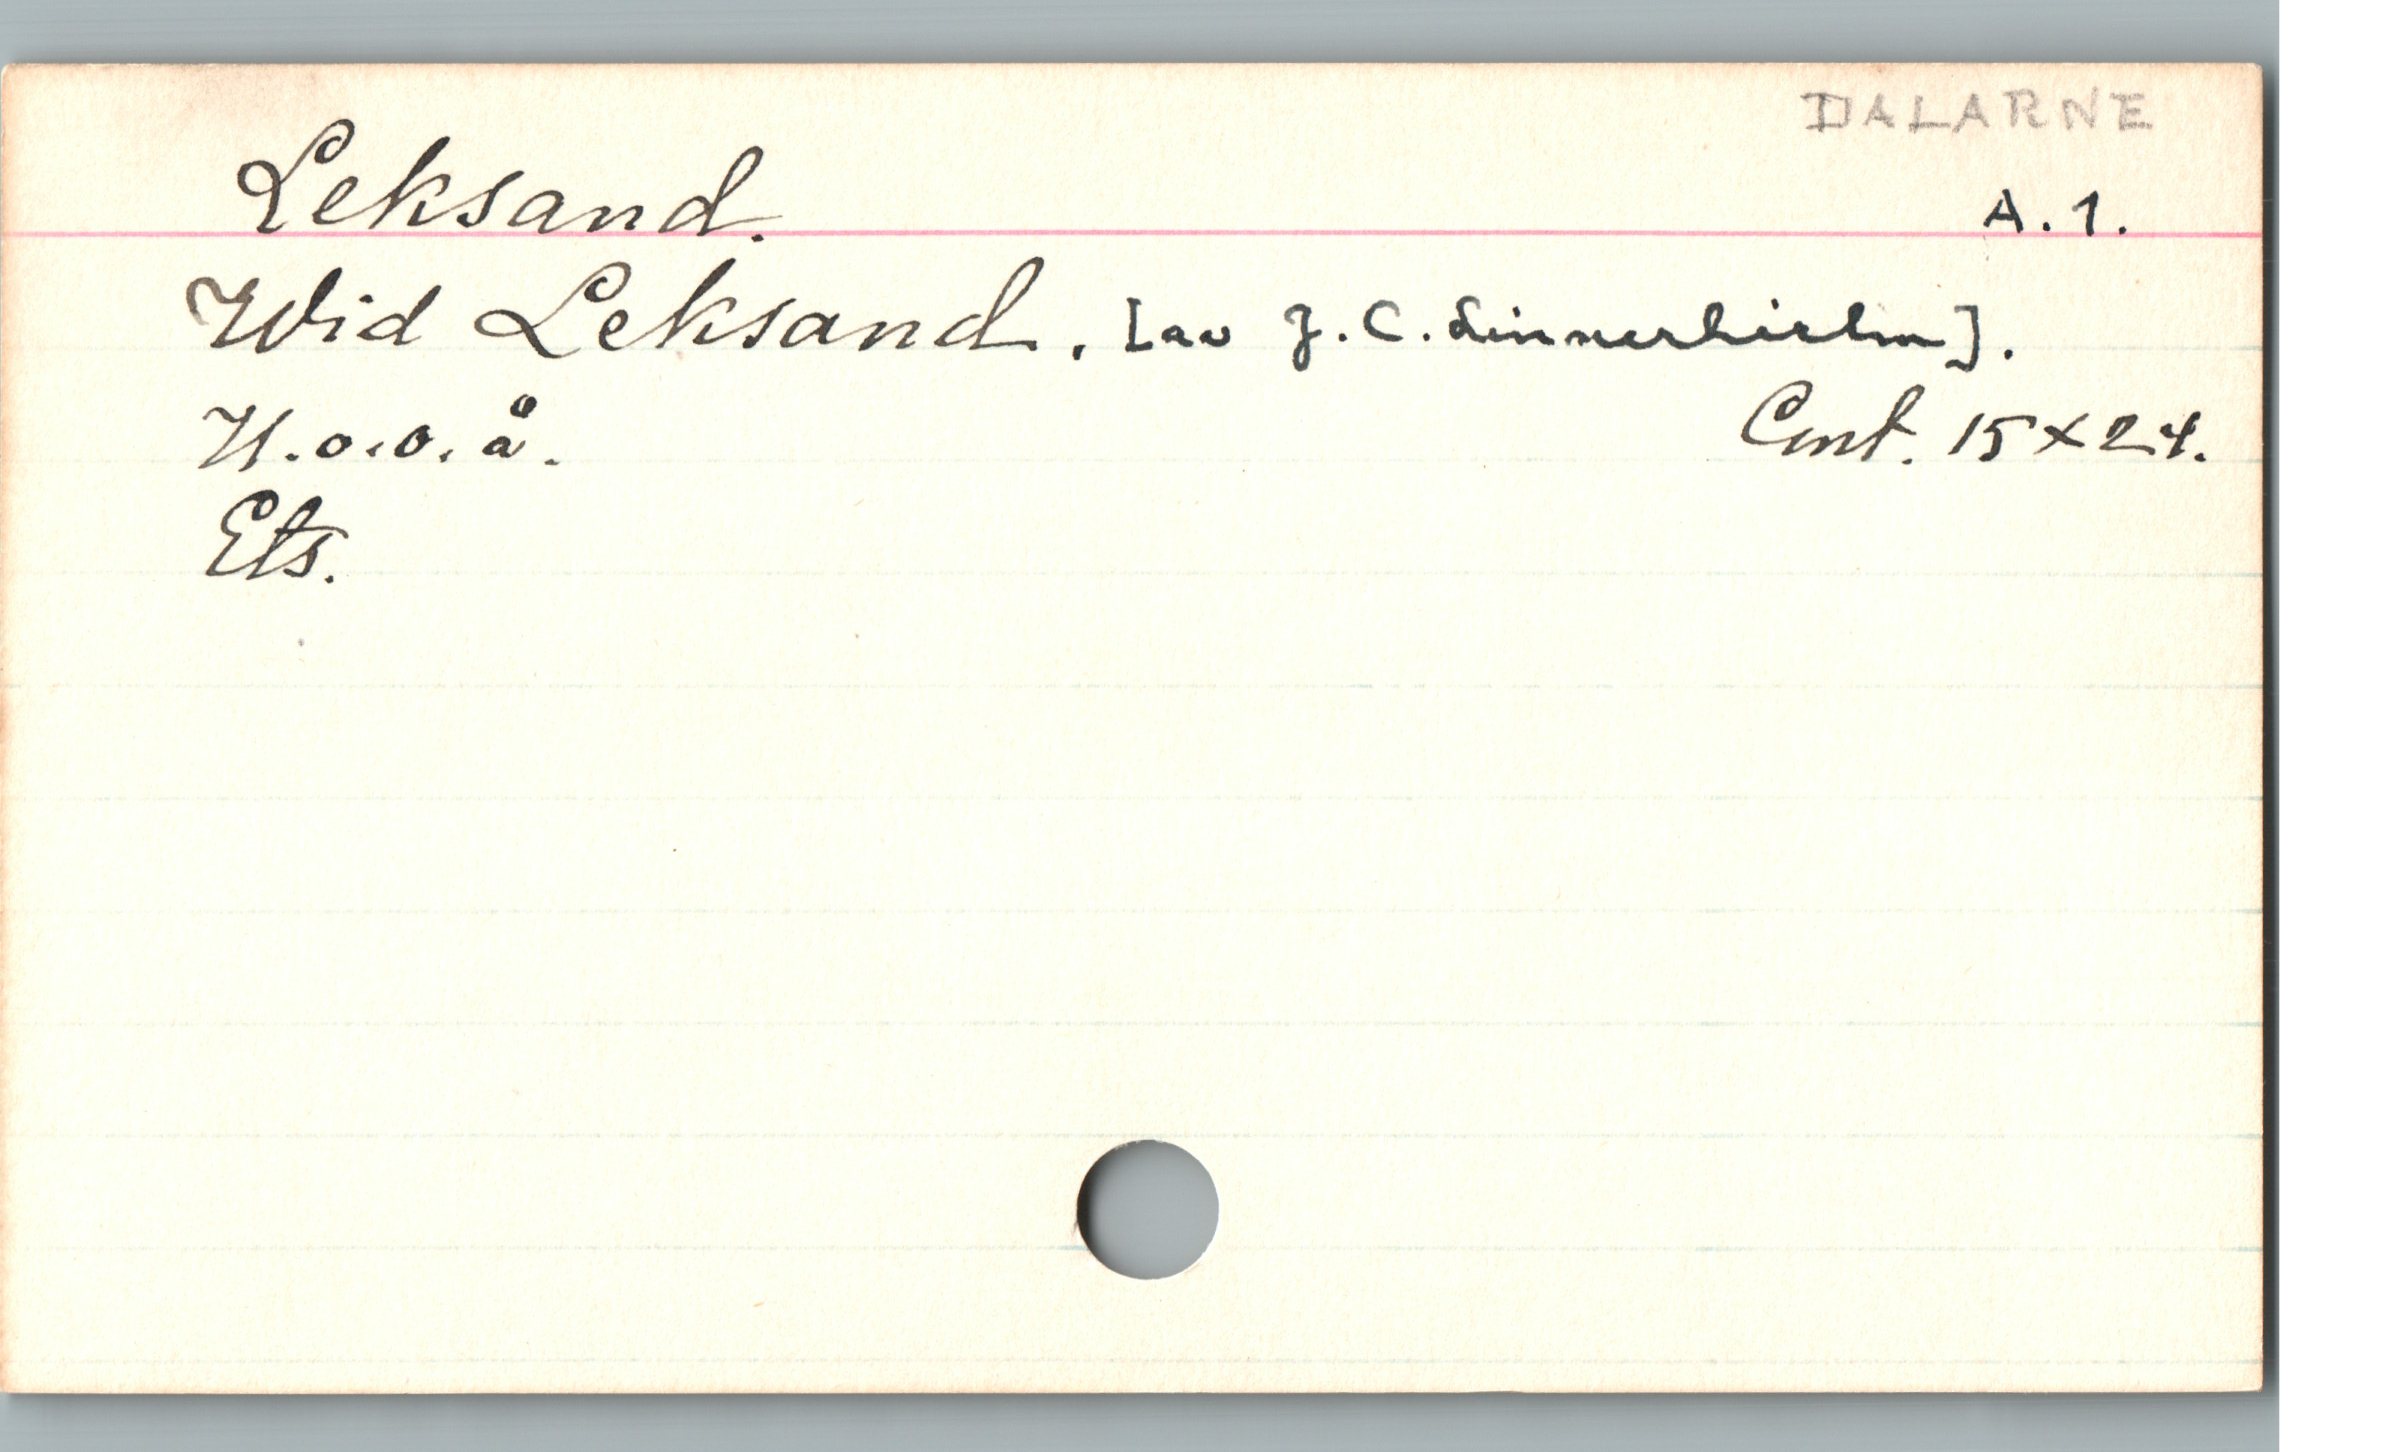 DALARNE
Leksand. A.1.
Wid Leksand. [av J.C. Linnerhielm].
U.o.o.å. Cent. 15x24.
Ets.